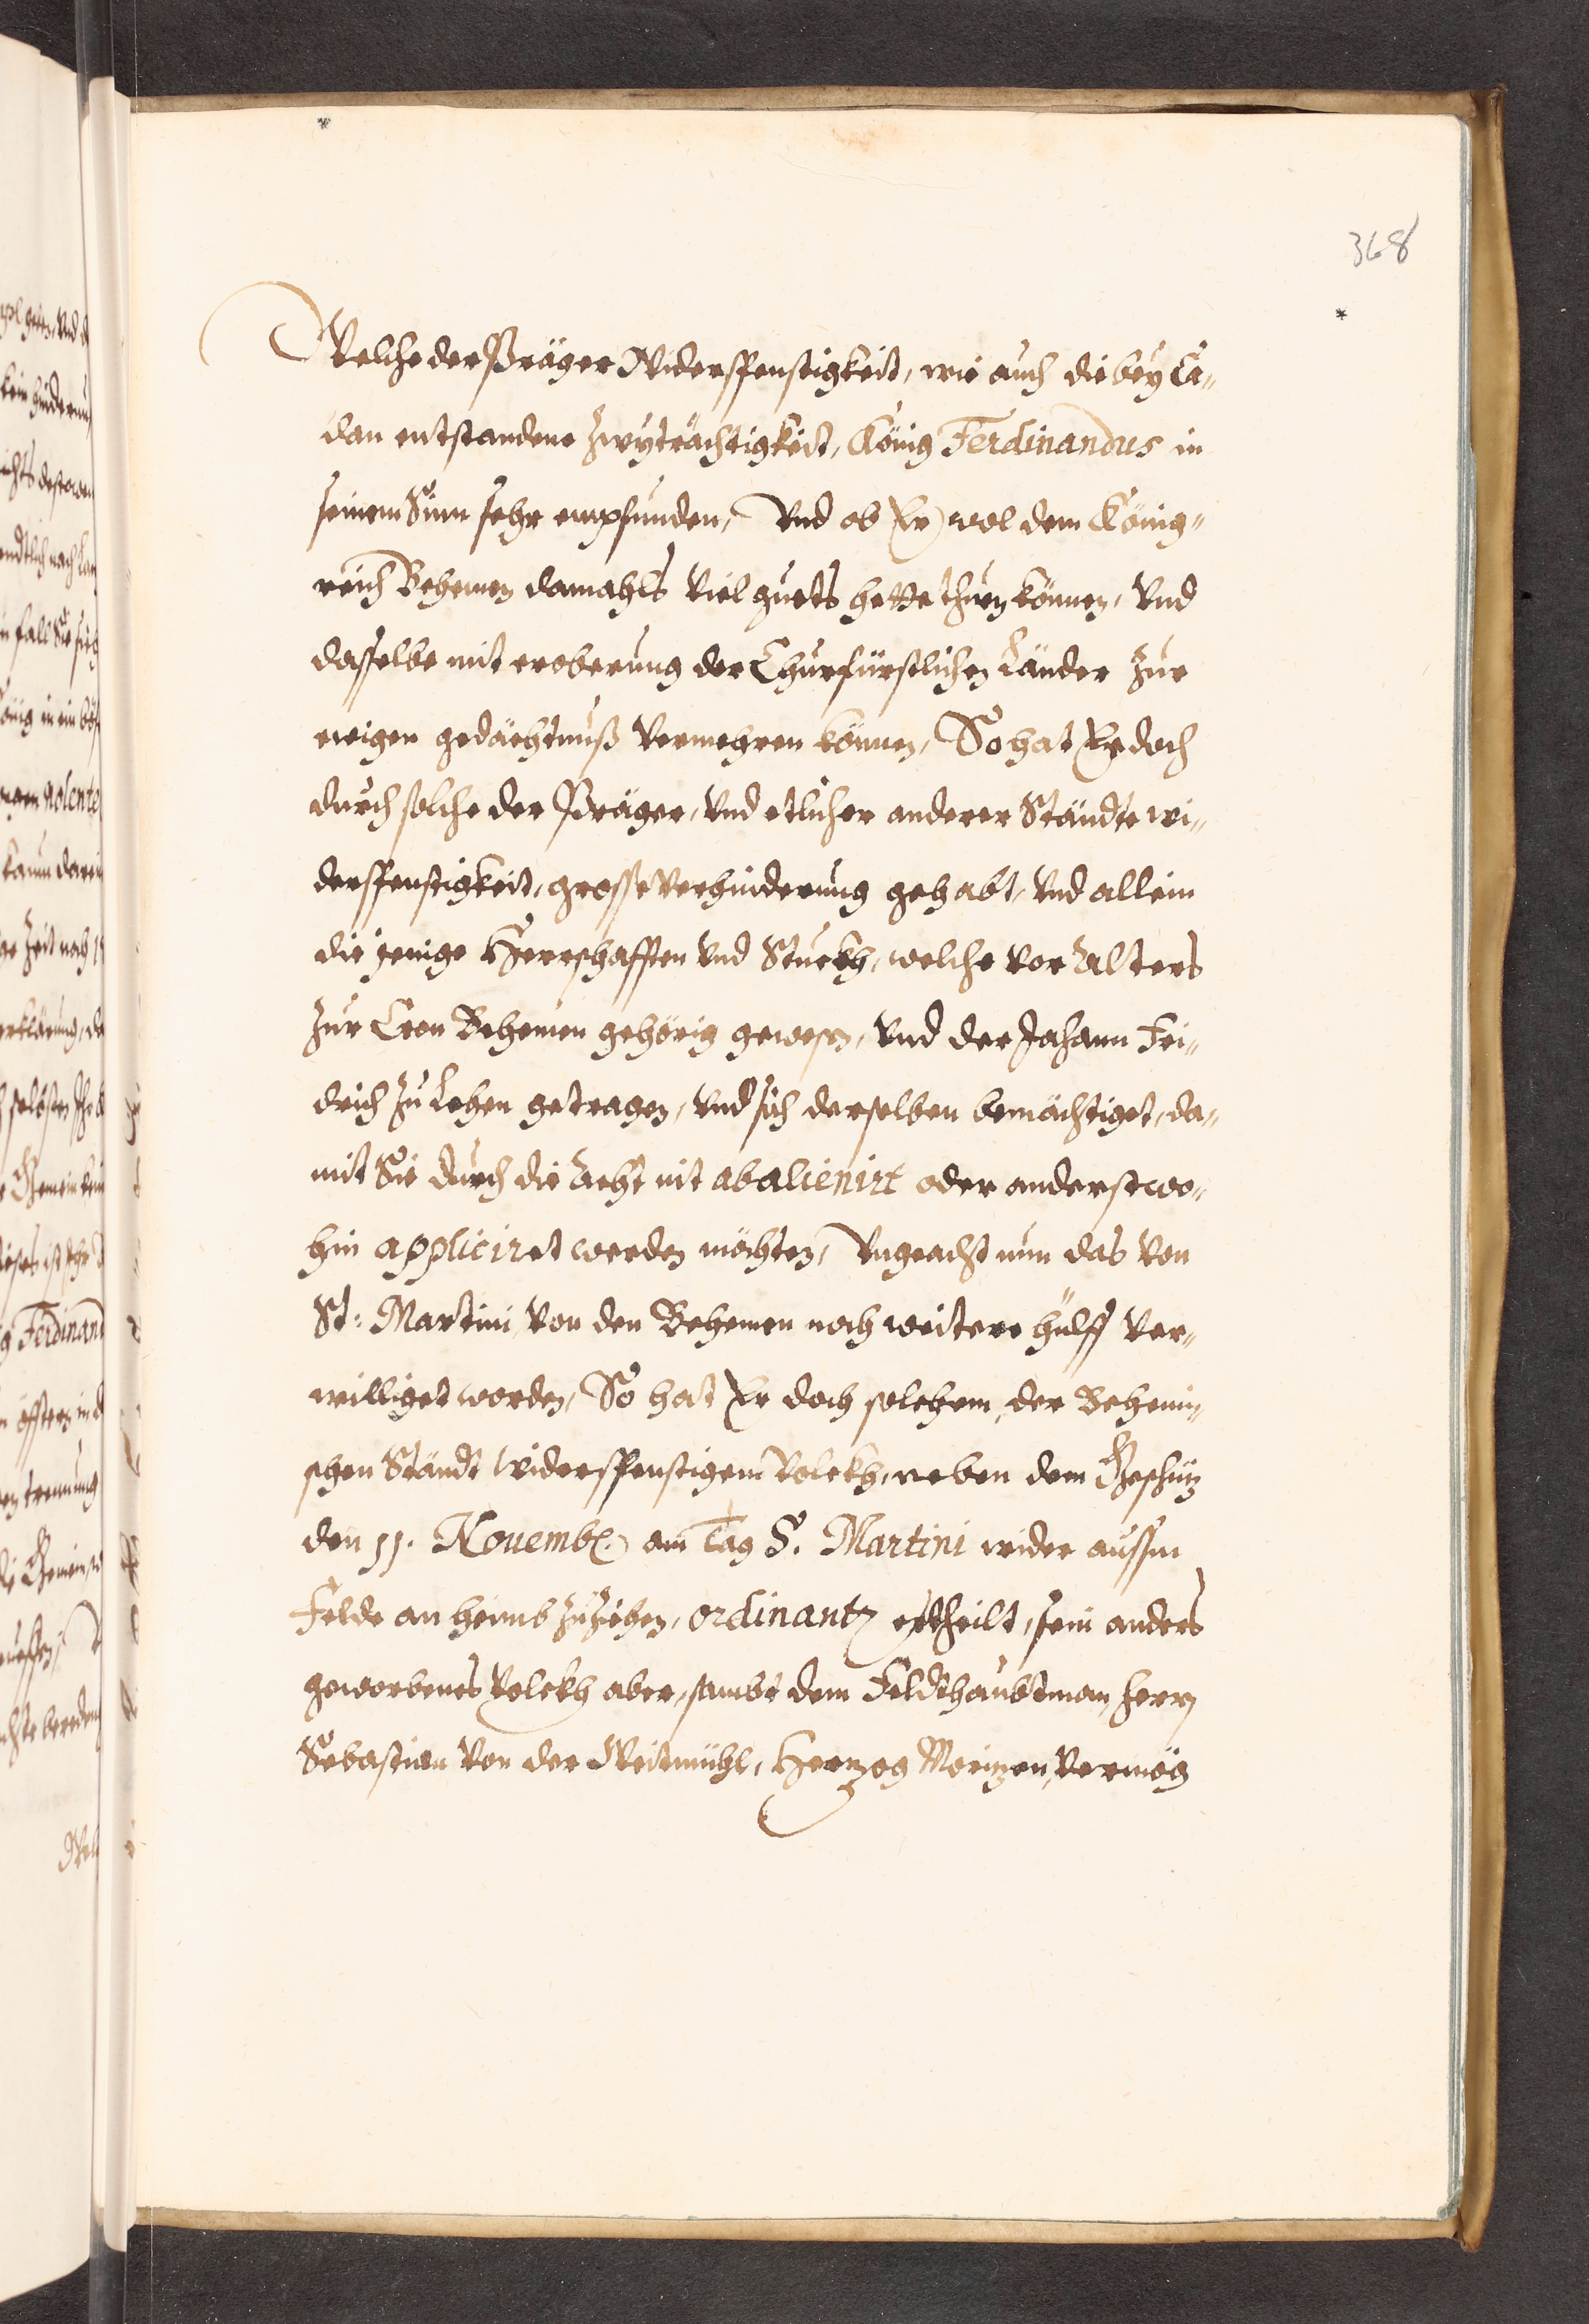 368
Welche der Präger Widerspenstigkeit, wie auch die bey Ca„
dan entstandene Zwyträchtigkeit, König Ferdinandus in
seinem Sinn sehr empfunden, Vnd ob Er wol dem König„
reich Behemen damahls Viel guets hette thuen können, Vnd
dasselbe mit eroberung der Churfürstlichen Länder zur
ewigen gedächtnuß Vermehren können, So hat Er doch
durch solche der Präger, Vnd etlicher anderer Ständte wi„
derspenstigkeit, grosse Verhinderung gehabt, Vnd allein
die jenige Herrschafften Vnd Stuckh, welche Vor Alters
zur Cron Behemen gehörig gewesen, Vnd der Johann Fri„
drich zu Lehen getragen, Vnd sich derselben bemächtiget, da„
mit Sie durch die Acht nit abalienirt oder anderstwo„
hin appliciret werden möchten, Vngeacht nun das Von
St: Martini Von den Behemen noch weitere hülff Ver„
williget worden, So hat Er doch solchem, der Behemi„
schen Ständt Widerspenstigem Volckh, neben dem Geschütz
den 11. Novemb. am Tag S. Martini wider aussm
Felde anheimb zuziehen, ordinantz ertheilt, sein anders
geworbenes Volckh aber, sambt dem Feldthaubtman, herrn
Sebastian Von der Weitmühl, Hertzog Moritzen, Vermög